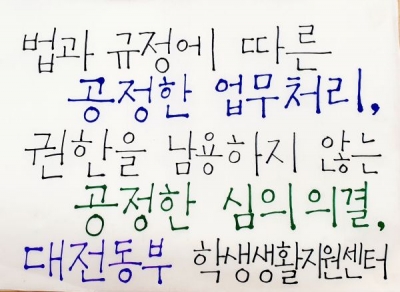 법과 규정에 따른
공정한 업무처리,
권한을 남용하지 않는
공정한 심의의결,
대전동부 학생생활지원센터